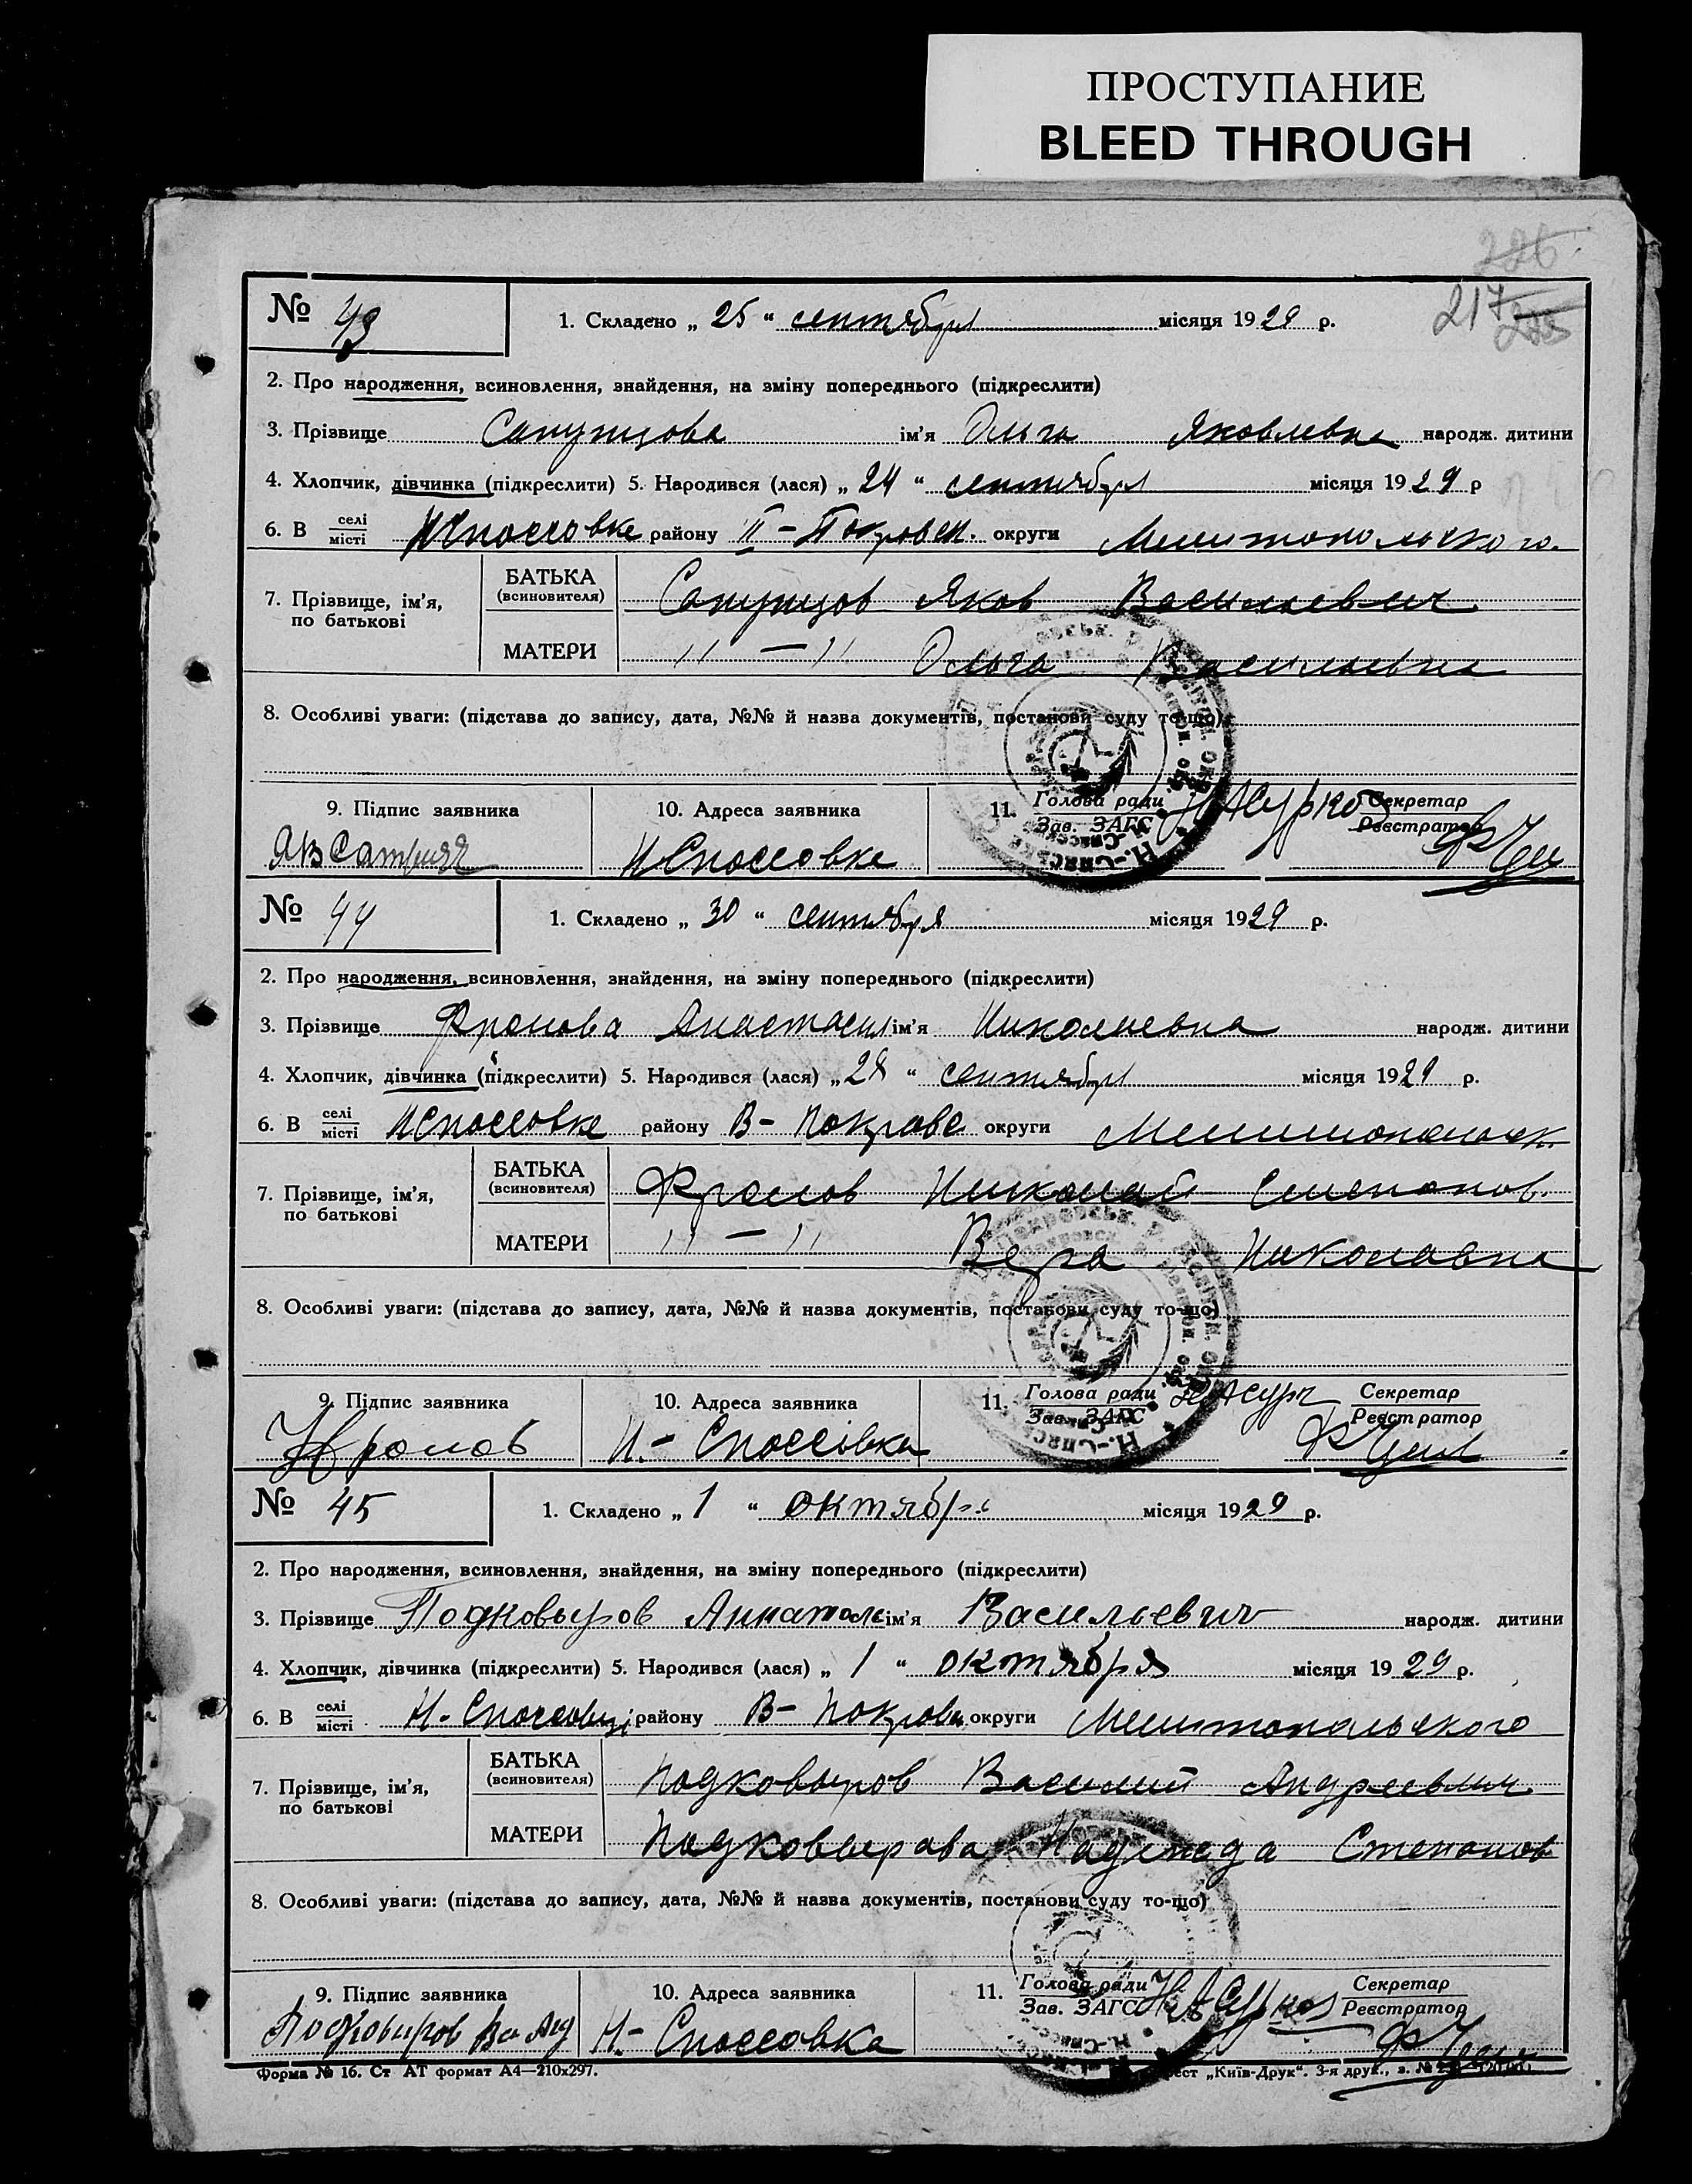 ПРОСТУПАНИЕ
BLEED THROUGH
226
217
№ 43 1. Складено „ 25 “ сентября місяця 1929 р.
2. Про народження, всиновлення, знайдення, на зміну попереднього (підкреслити)
3. Прізвище ім'я Ольга Яковлевна народж. дитини
4. Хлопчик, дівчинка (підкреслити) 5. Народився (лася) „ 24 “ сентября місяця 1929 р
6. В селі місті НСпоссовке району округи Мелитопольского.
7. Прізвище, ім'я, по батькові БАТЬКА (всиновителя) Яков Васильевич
МАТЕРИ " — " Ольга Васильевна
8. Особливі уваги: (підстава до запису, дата, №№ й назва документів, постанови суду то-що)
9. Підпис заявника 10. Адреса заявника 11. Голова ради Зав. ЗАГС Секретар Реєстратор
НСпоссовке
№ 44 1. Складено „ 30 “ сентября місяця 1929 р.
2. Про народження, всиновлення, знайдення, на зміну попереднього (підкреслити)
3. Прізвище Фролова Анастасия ім'я Николаевна народж. дитини
4. Хлопчик, дівчинка (підкреслити) 5. Народився (лася) „ 28 “ сентября місяця 1929 р.
6. В селі місті НСпоссовке району В- Покровс округи Мелитопольск.
7. Прізвище, ім'я, по батькові БАТЬКА (всиновителя) Фролов Николай Степанов.
МАТЕРИ " — " Вера Николаевна
8. Особливі уваги: (підстава до запису, дата, №№ й назва документів, постанови суду то-що)
9. Підпис заявника 10. Адреса заявника 11. Голова ради Зав. ЗАГС Секретар Реєстратор
Фролов Н- Споссовка
№ 45 1. Складено „ 1 “ октября місяця 1929 р.
2. Про народження, всиновлення, знайдення, на зміну попереднього (підкреслити)
3. Прізвище Подковыров Аннатоль ім'я Васильевич народж. дитини
4. Хлопчик, дівчинка (підкреслити) 5. Народився (лася) „ 1 “ октября місяця 1929 р.
6. В селі місті Н- Споссовці району В- Покровск округи Мелитопольского
7. Прізвище, ім'я, по батькові БАТЬКА (всиновителя) Подковыров Василий Андреевич.
МАТЕРИ Подковырова Надежда Степанов
8. Особливі уваги: (підстава до запису, дата, №№ й назва документів, постанови суду то-що)
9. Підпис заявника 10. Адреса заявника 11. Голова ради Зав. ЗАГС Секретар Реєстратор
Подковиров Н- Споссовка
Форма № 16. Ст АТ формат А4—210х297. „Київ-Друк“. 3-я друк.,